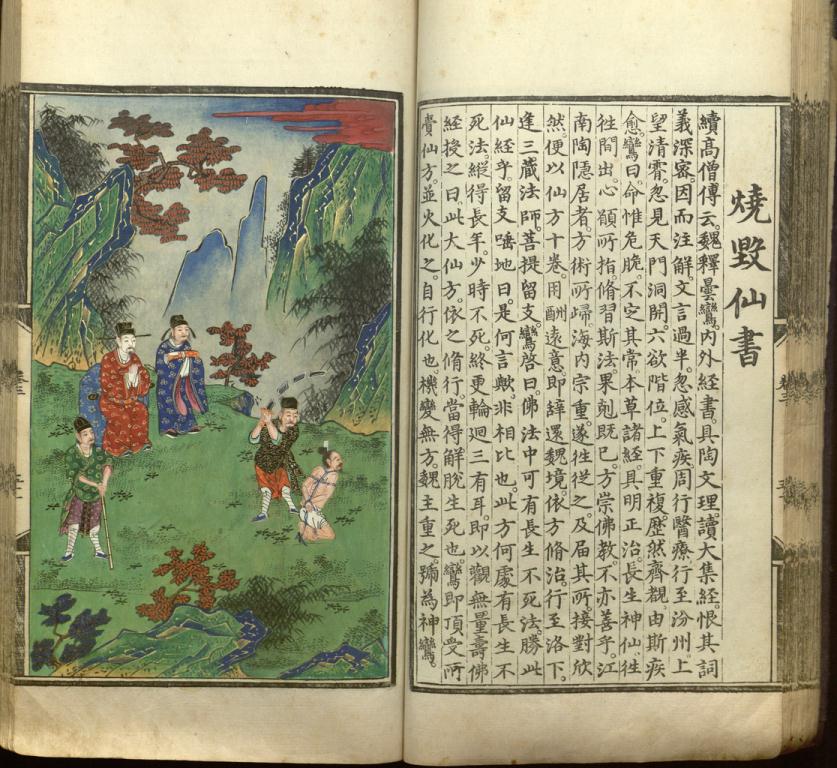 燒毀仙書
續高僧傳云。魏釋曇鸞。內外經書。具陶文理。讀大集經。恨其詞
義深密。因而注解。文言過半。忽感氣疾。周行醫療。行至汾州。上
望清霄。忽見天門洞開。六欲階位。上下重複。歷然齊覩。由斯疾
愈。鸞曰。命惟危脆。不定其常。本草諸經。具明正治。長生神仙。徃
徃間出。心願所指。脩習斯法。果剋既已。方崇佛教。不亦善乎。江
南陶隱居者。方術所歸。海內宗重。遂徃從之。及屆其所。接對欣
然。便以仙方十卷。用酬遠意。即辭還魏境。依方脩治。行至洛下。
逢三藏法師。菩提留支。鸞啓曰。佛法中可有長生不死法。勝此
仙經乎。留支唾地曰。是何言歟。非相比也。此方何處有長生不
死法。縱得長年。少時不死。終更輪迴三有耳。即以觀無量壽佛
經授之曰。此大仙方。依之脩行。當得解脫生死也。鸞即頂受。所
賫仙方。並火化之。自行化也。機變無方。魏主重之。號為神鸞。